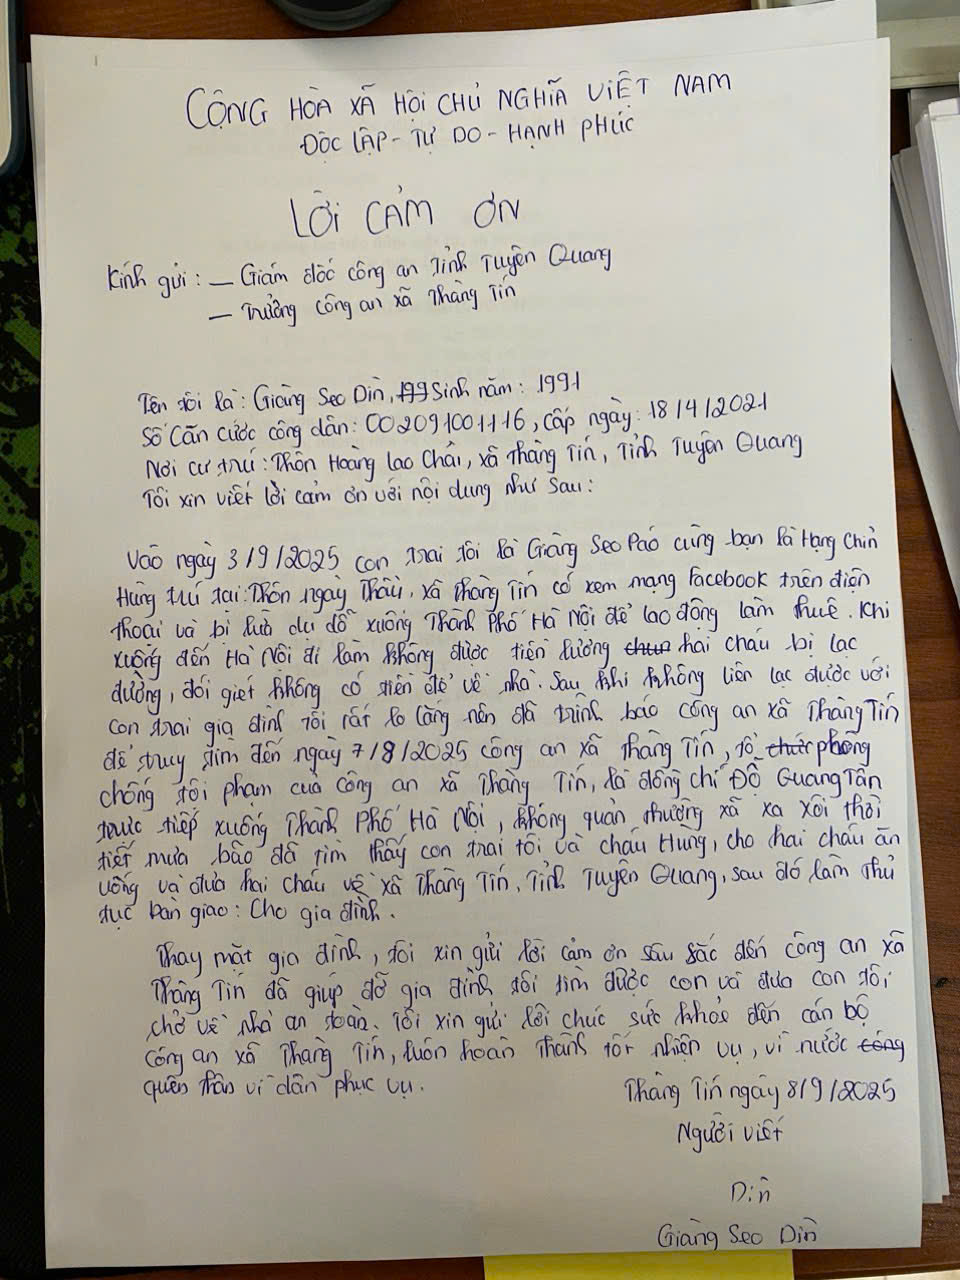 CỘNG HÒA XÃ HỘI CHỦ NGHĨA VIỆT NAM
ĐỘC LẬP - TỰ DO - HẠNH PHÚC
LỜI CẢM ƠN
Kính gửi: - Giám đốc công an Tỉnh Tuyên Quang
- Trưởng công an xã Thàng Tín
Tên tôi là: Giàng Seo Dìn, 199 Sinh năm: 1991
Số Căn cước công dân: 002091001116, cấp ngày: 18/4/2021
Nơi cư trú: Thôn Hoàng Lao Chải, xã Thàng Tín, Tỉnh Tuyên Quang
Tôi xin viết lời cảm ơn với nội dung như sau:
Vào ngày 3/9/2025 con trai tôi là Giàng Seo Páo cùng bạn là Hạng Chín
Hùng trú tại: Thôn ngày Thầu, xã Thàng Tín có xem mạng facebook trên điện
thoại và bị lừa dụ dỗ xuống Thành Phố Hà Nội để lao động làm thuê. Khi
xuống đến Hà Nội đi làm không được tiền lương hai cháu bị lạc
đường, đói giét không có tiền để về nhà. Sau khi không liên lạc được với
con trai gia đình tôi rất lo lắng nên đã trình báo công an xã Thàng Tín
để truy tìm đến ngày 7/8/2025 công an xã Thàng Tín, tổ phòng
chống tội phạm của công an xã Thàng Tín, là đồng chí Đỗ Quang Tân
trực tiếp xuống Thành Phố Hà Nội, không quản thường xã xa xôi thời
tiết mưa bão đã tìm thấy con trai tôi và cháu Hùng, cho hai cháu ăn
uống và đưa hai cháu về xã Thàng Tín, Tỉnh Tuyên Quang, sau đó làm thủ
tục bàn giao: Cho gia đình.
Thay mặt gia đình, tôi xin gửi lời cảm ơn sâu sắc đến công an xã
Thàng Tín đã giúp đỡ gia đình tôi tìm được con và đưa con tôi,
chở về nhà an toàn. Tôi xin gửi lời chúc sức khỏe đến cán bộ
công an xã Thàng Tín, luôn hoàn thành tốt nhiện vụ, vì nước công
quên thân vì dân phục vụ.
Thàng Tín ngày 8/9/2025
Người viết
Dìn
Giàng Seo Dìn